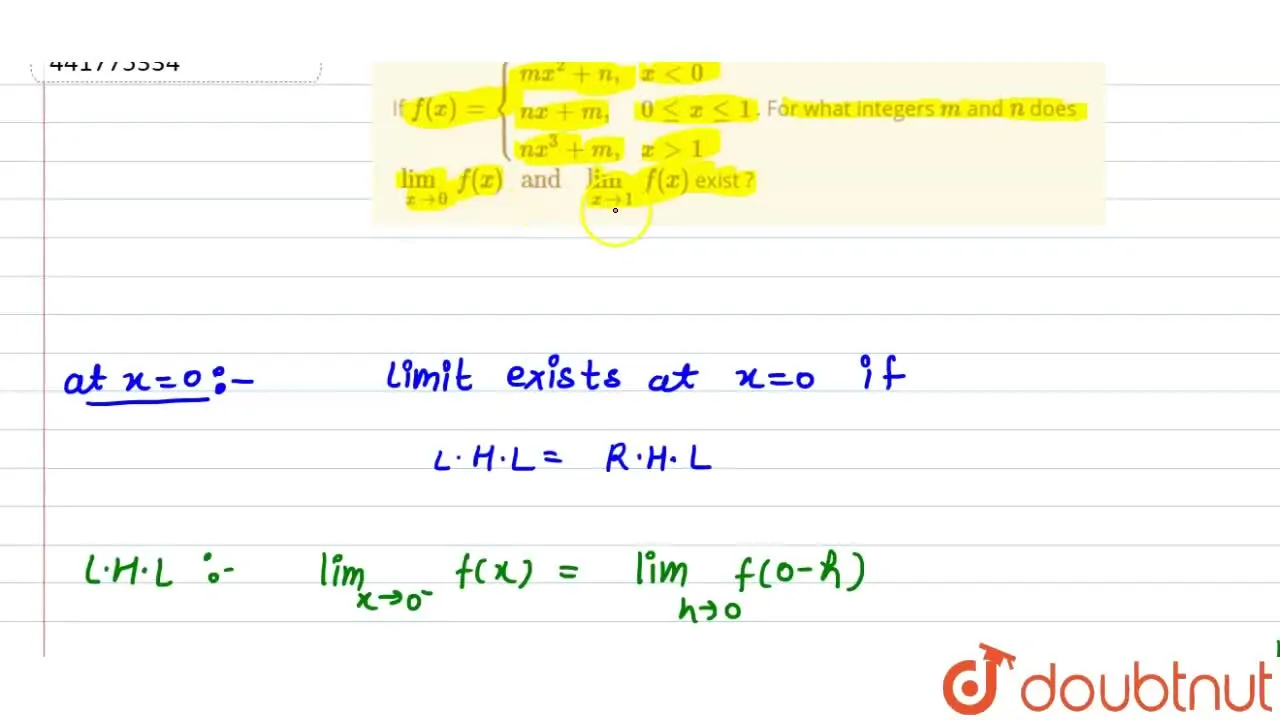 441775334
If f(x) = { mx² + n, x < 0
nx + m, 0 ≤ x ≤ 1 . For what integers m and n does
nx³ + m, x > 1
lim x→0 f(x) and lim x→1 f(x) exist ?
at x=0 :- limit exists at x=0 if
L.H.L = R.H.L
L.H.L :- lim x→0⁻ f(x) = lim h→0 f(0-h)
doubtnut